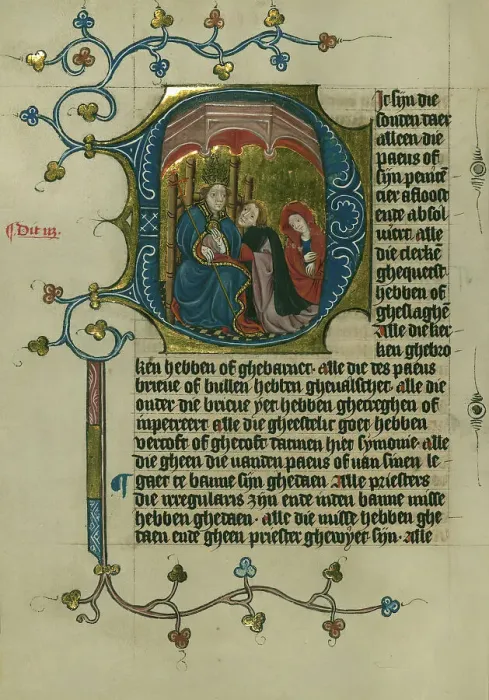 Dit sijn die
sonden daer
alleen die
paeus of
sijn peniten
cier afloost
ende absol
uiert. alle
die clerkē
ghequetst
hebben of
gheslaghē
Alle die ker
ken ghebro
ken hebben of ghebarnet. alle die des paeus
brieue of bullen hebben gheualschet. alle die
onder die brieue yet hebben ghecreghen of
inpetreert. alle die gheestelic goet hebben
vercoft of ghecoft datmen hiet symonie. alle
die gheen die vanden paeus of van sinen le
gaet te banne sijn ghedaen. Alle priesters
die irregularis zijn ende inden banne misse
hebben ghedaen. alle die misse hebben ghe
daen ende gheen priester ghewyet sijn. alle